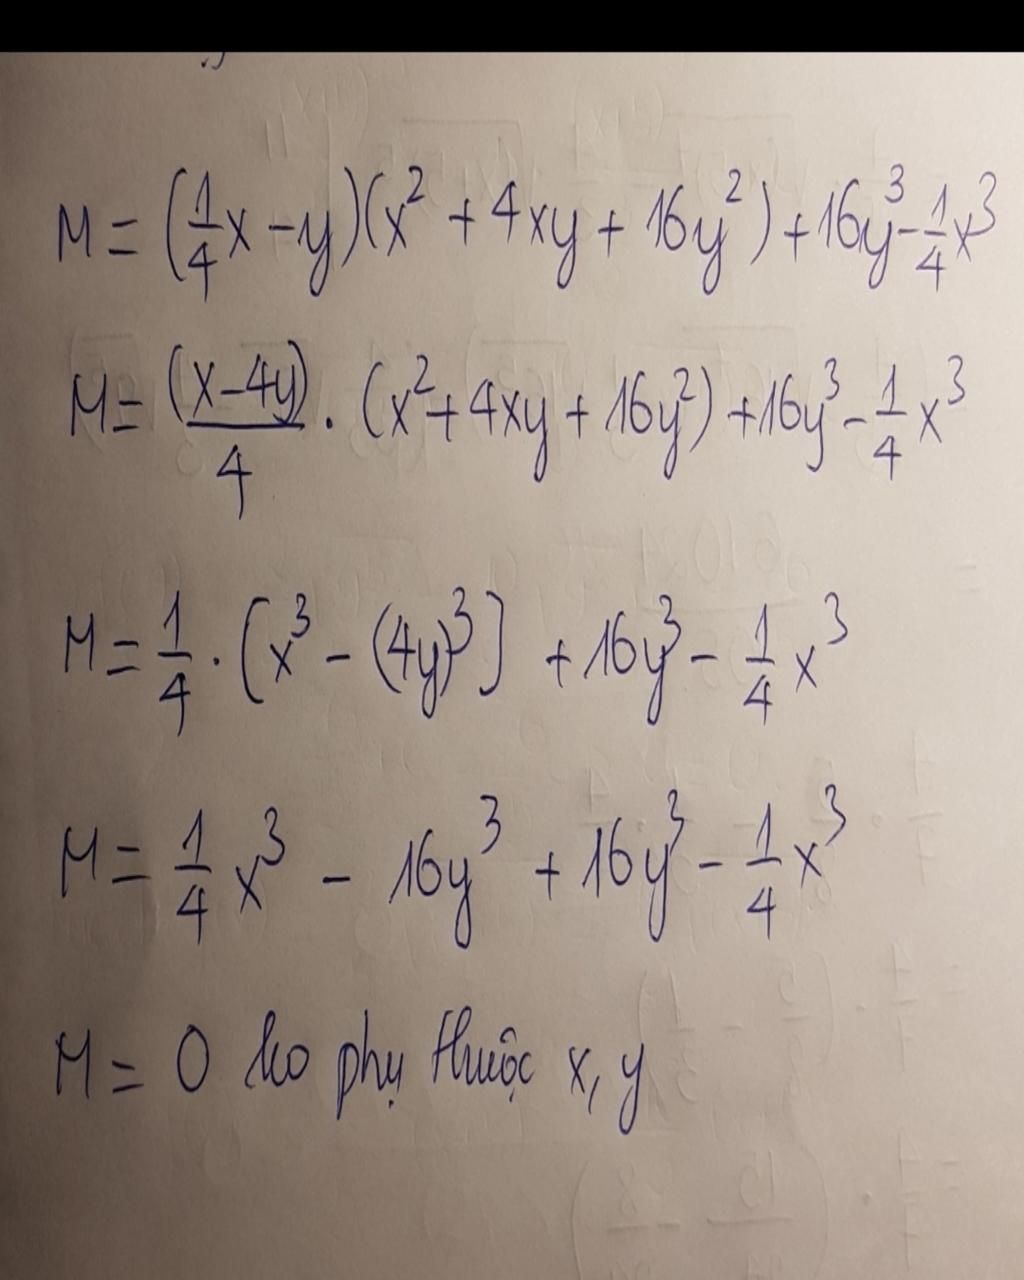 M = (1/4 x - y)(x² + 4xy + 16y²) + 16y³ - 1/4 x³
M = (x - 4y)/4 . (x² + 4xy + 16y²) + 16y³ - 1/4 x³
M = 1/4 . [x³ - (4y)³] + 16y³ - 1/4 x³
M = 1/4 x³ - 16y³ + 16y³ - 1/4 x³
M = 0 ko phụ thuộc x, y